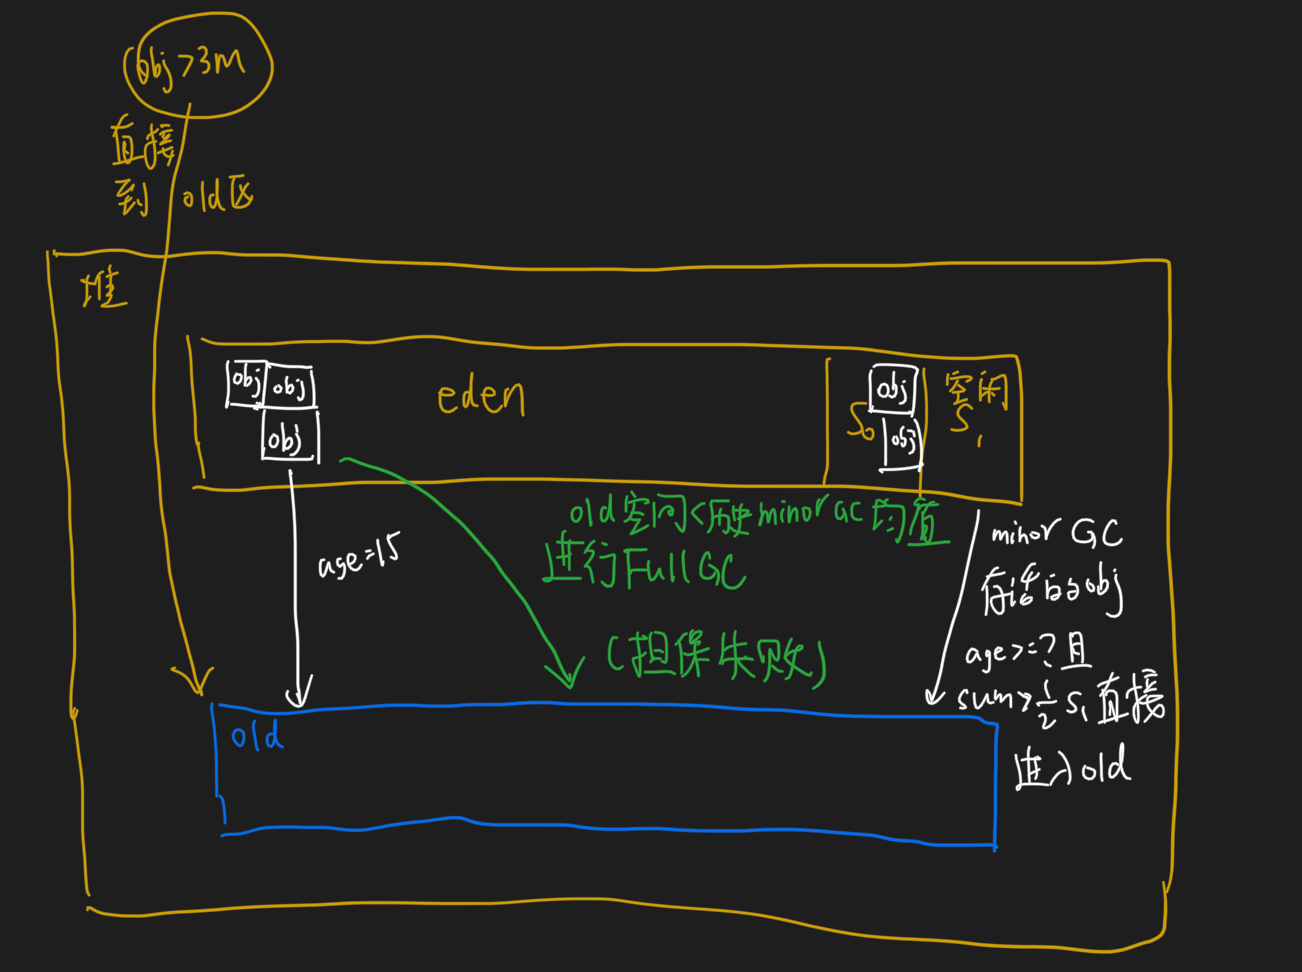 obj>3m
直接
到 old区
堆
obj obj
obj
eden
S0
obj
obj
空闲
S1
age=15
old空间<历史minorGC均值
进行FullGC
(担保失败)
minor GC
存活的obj
age>=?且
sum>1/2 S1直接
进入old
old